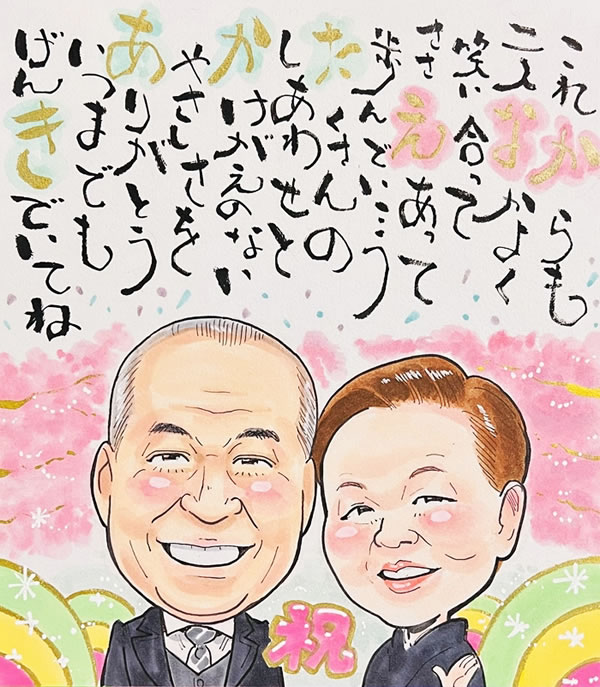 これからも
二人なかよく
笑い合って
ささえあって
歩んでいこう
たくさんの
しあわせと
かけがえのない
やさしさを
ありがとう
いつまでも
げんきでいてね
祝